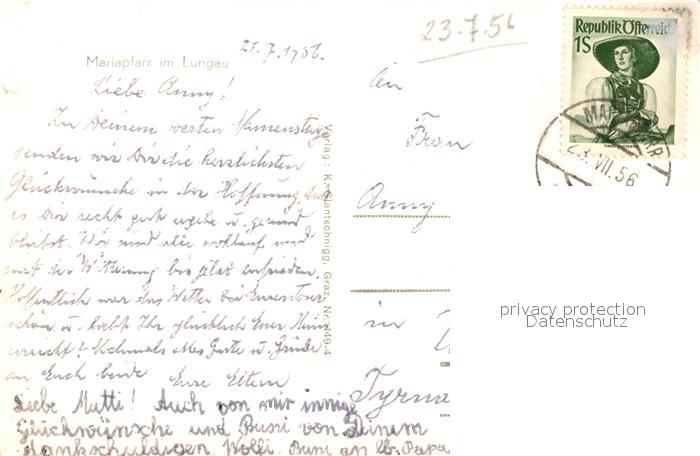 23.7.56
Republik Österreich
1S
21.7.1956.
Mariapfarr im Lungau
Liebe Anny!
An
Zu Deinem werten Namenstag
senden wir Dir die herzlichsten
Glückwünsche in der Hoffnung, daß
es Dir recht gut ergehe u. gesund
bleibst. Wir sind alle wohlauf und
mit der Witterung bis jetzt zufrieden.
Hoffentlich war das Wetter bei Eurer Tour
schön u. habt Ihr glücklich Euer
erreicht? Nochmals alles Gute u. Grüße
an Euch beide Eure Eltern
Liebe Mutti! Auch von mir innige
Glückwünsche und Bussi von Deinem
dankschuldigen Wolfi. Bussi an lb. Papa
Verlag: K. Glantschnigg, Graz, Nr. 449-4
Frau
Anny
in
Tyrna
23.VII.56
privacy protection
Datenschutz